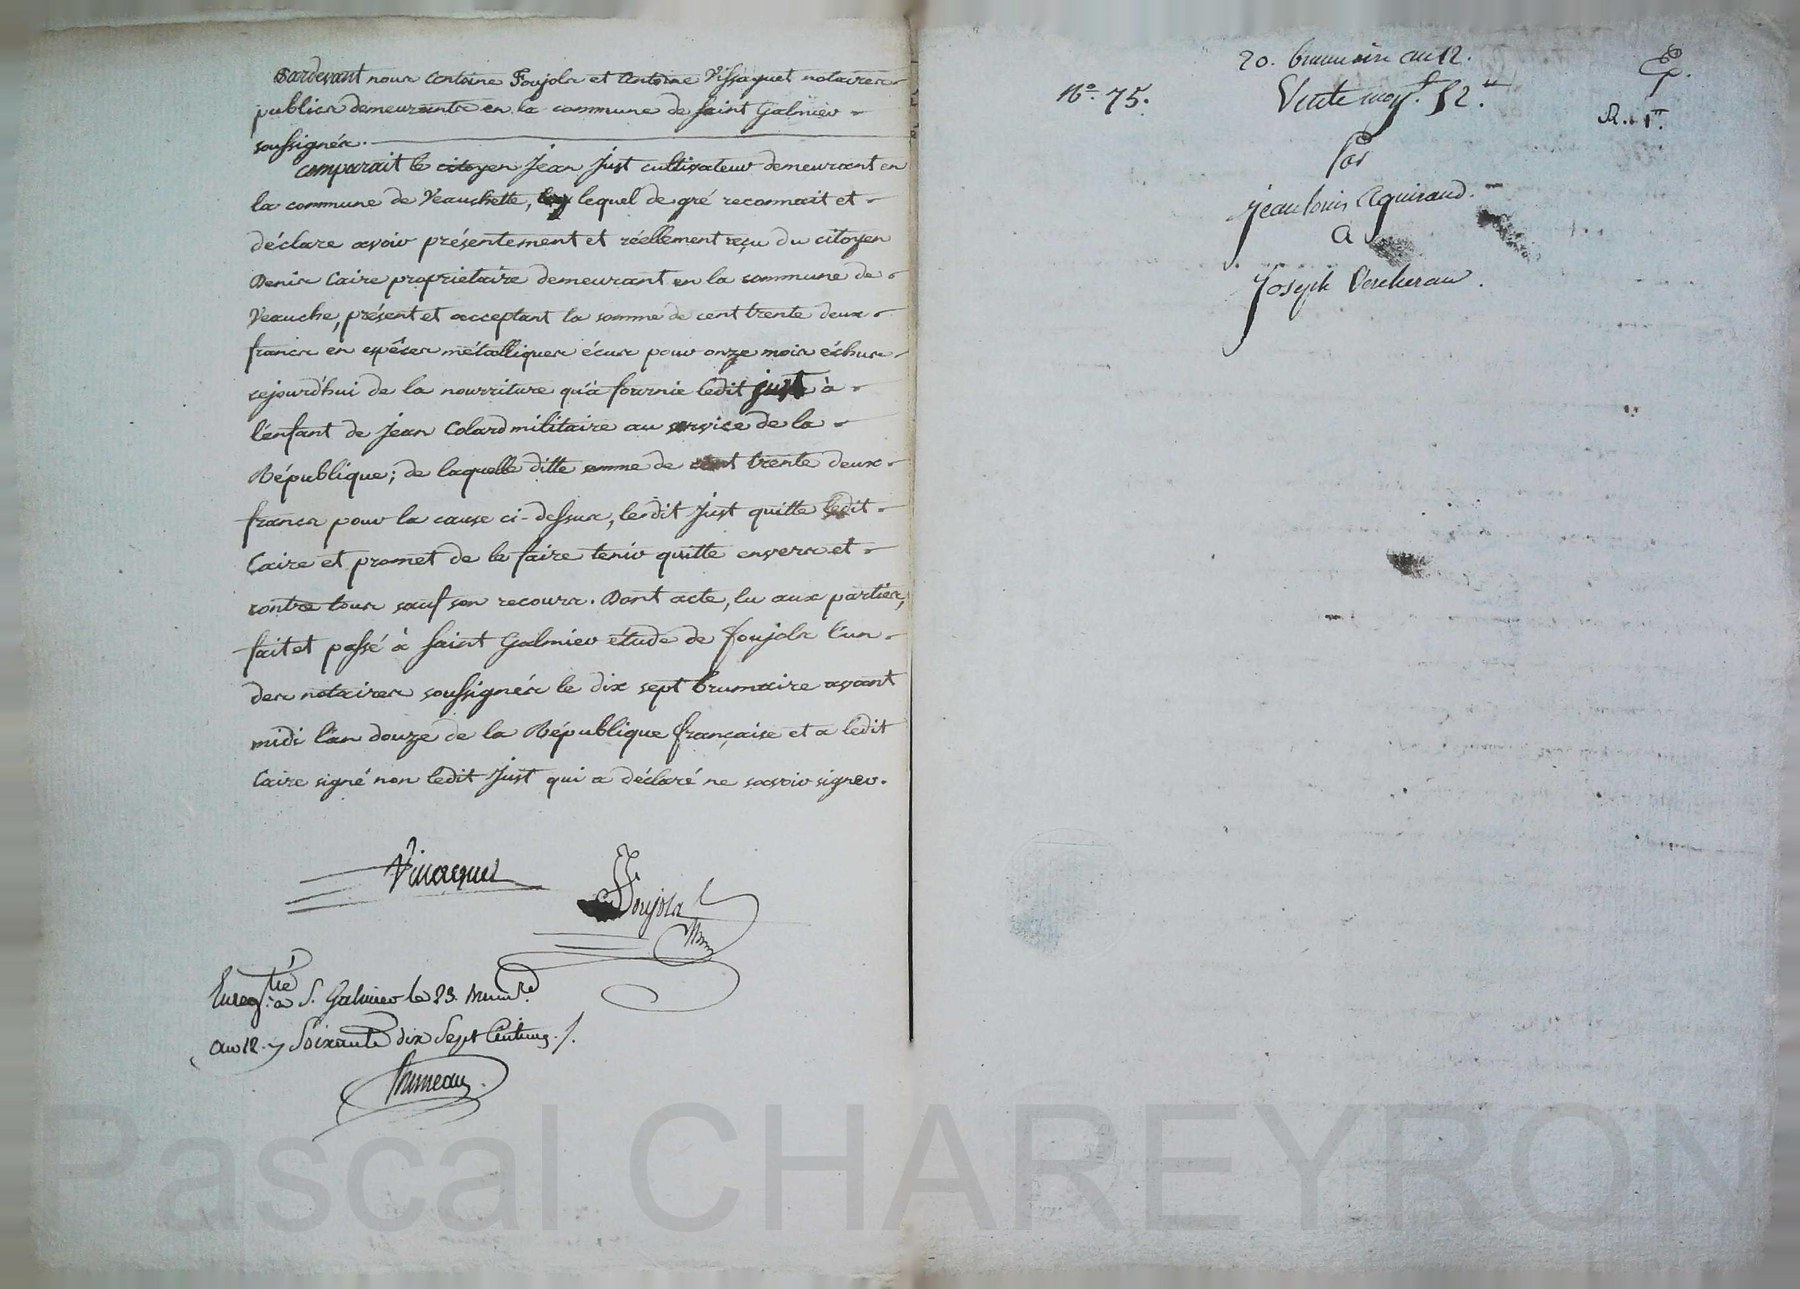 Pardevant nous Antoine Foujols et Antoine Vissaguet notaires
publics demeurants en la commune de Saint Galmier
soussignés.
Comparait le citoyen Jean Just cultivateur demeurant en
la commune de Veauchette, lequel de gré reconnait et
déclare avoir présentement et réellement reçu du citoyen
Denis Caire propriétaire demeurant en la commune de
Veauche, présent et acceptant la somme de cent trente deux
francs en espêces métalliques écus pour onze mois échus
cejourd'hui de la nourriture qu'a fournie ledit Just à
l'enfant de Jean Colard militaire au service de la
République; de laquelle ditte somme de cent trente deux
francs pour la cause ci-dessus, ledit Just quitte ledit
Caire et promet de le faire tenir quitte envers et
contre tous sauf son recours. Dont acte, lu aux parties,
fait et passé à Saint Galmier étude de Foujols l'un
des notaires soussignés le dix sept brumaire avant
midi l'an douze de la République française et a ledit
Caire signé non ledit Just qui a déclaré ne savoir signer.
Vissaguet
Foujols
Enregtré à S. Galmier le 23. brum.re
an 12. Soixante dix Sept Centimes
20. brumaire an 12.
No. 75.
Vente moy.t 52.tt
R. 1.r
Par
Jean Louis Aguiraud.
A
Joseph Vercherau.
Pascal CHAREYRON